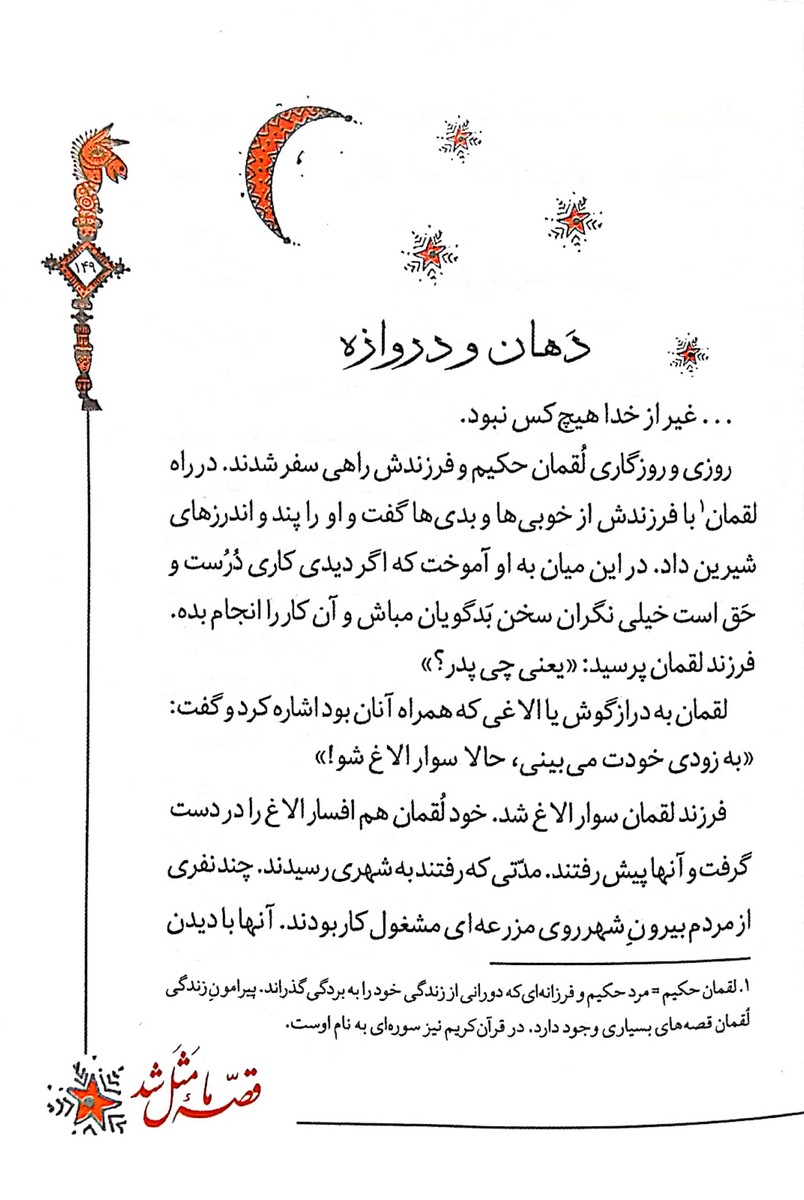 ۱۴۹
دَهان و دروازه
... غیر از خدا هیچ کس نبود.
روزی و روزگاری لُقمان حکیم و فرزندش راهی سفر شدند. در راه
لقمان۱ با فرزندش از خوبی‌ها و بدی‌ها گفت و او را پند و اندرزهای
شیرین داد. در این میان به او آموخت که اگر دیدی کاری دُرُست و
حَق است خیلی نگران سخن بَدگویان مباش و آن کار را انجام بده.
فرزند لقمان پرسید: «یعنی چی پدر؟»
لقمان به درازگوش یا الاغی که همراه آنان بود اشاره کرد و گفت:
«به زودی خودت می‌بینی، حالا سوار الاغ شو!»
فرزند لقمان سوار الاغ شد. خود لُقمان هم افسار الاغ را در دست
گرفت و آنها پیش رفتند. مدّتی که رفتند به شهری رسیدند. چند نفری
از مردم بیرونِ شهر روی مزرعه‌ای مشغول کار بودند. آنها با دیدن
۱. لقمان حکیم = مرد حکیم و فرزانه‌ای که دورانی از زندگی خود را به بردگی گذراند. پیرامونِ زندگی
لُقمان قصه‌های بسیاری وجود دارد. در قرآن کریم نیز سوره‌ای به نام اوست.
قصّهٔ ما مَثَل شد